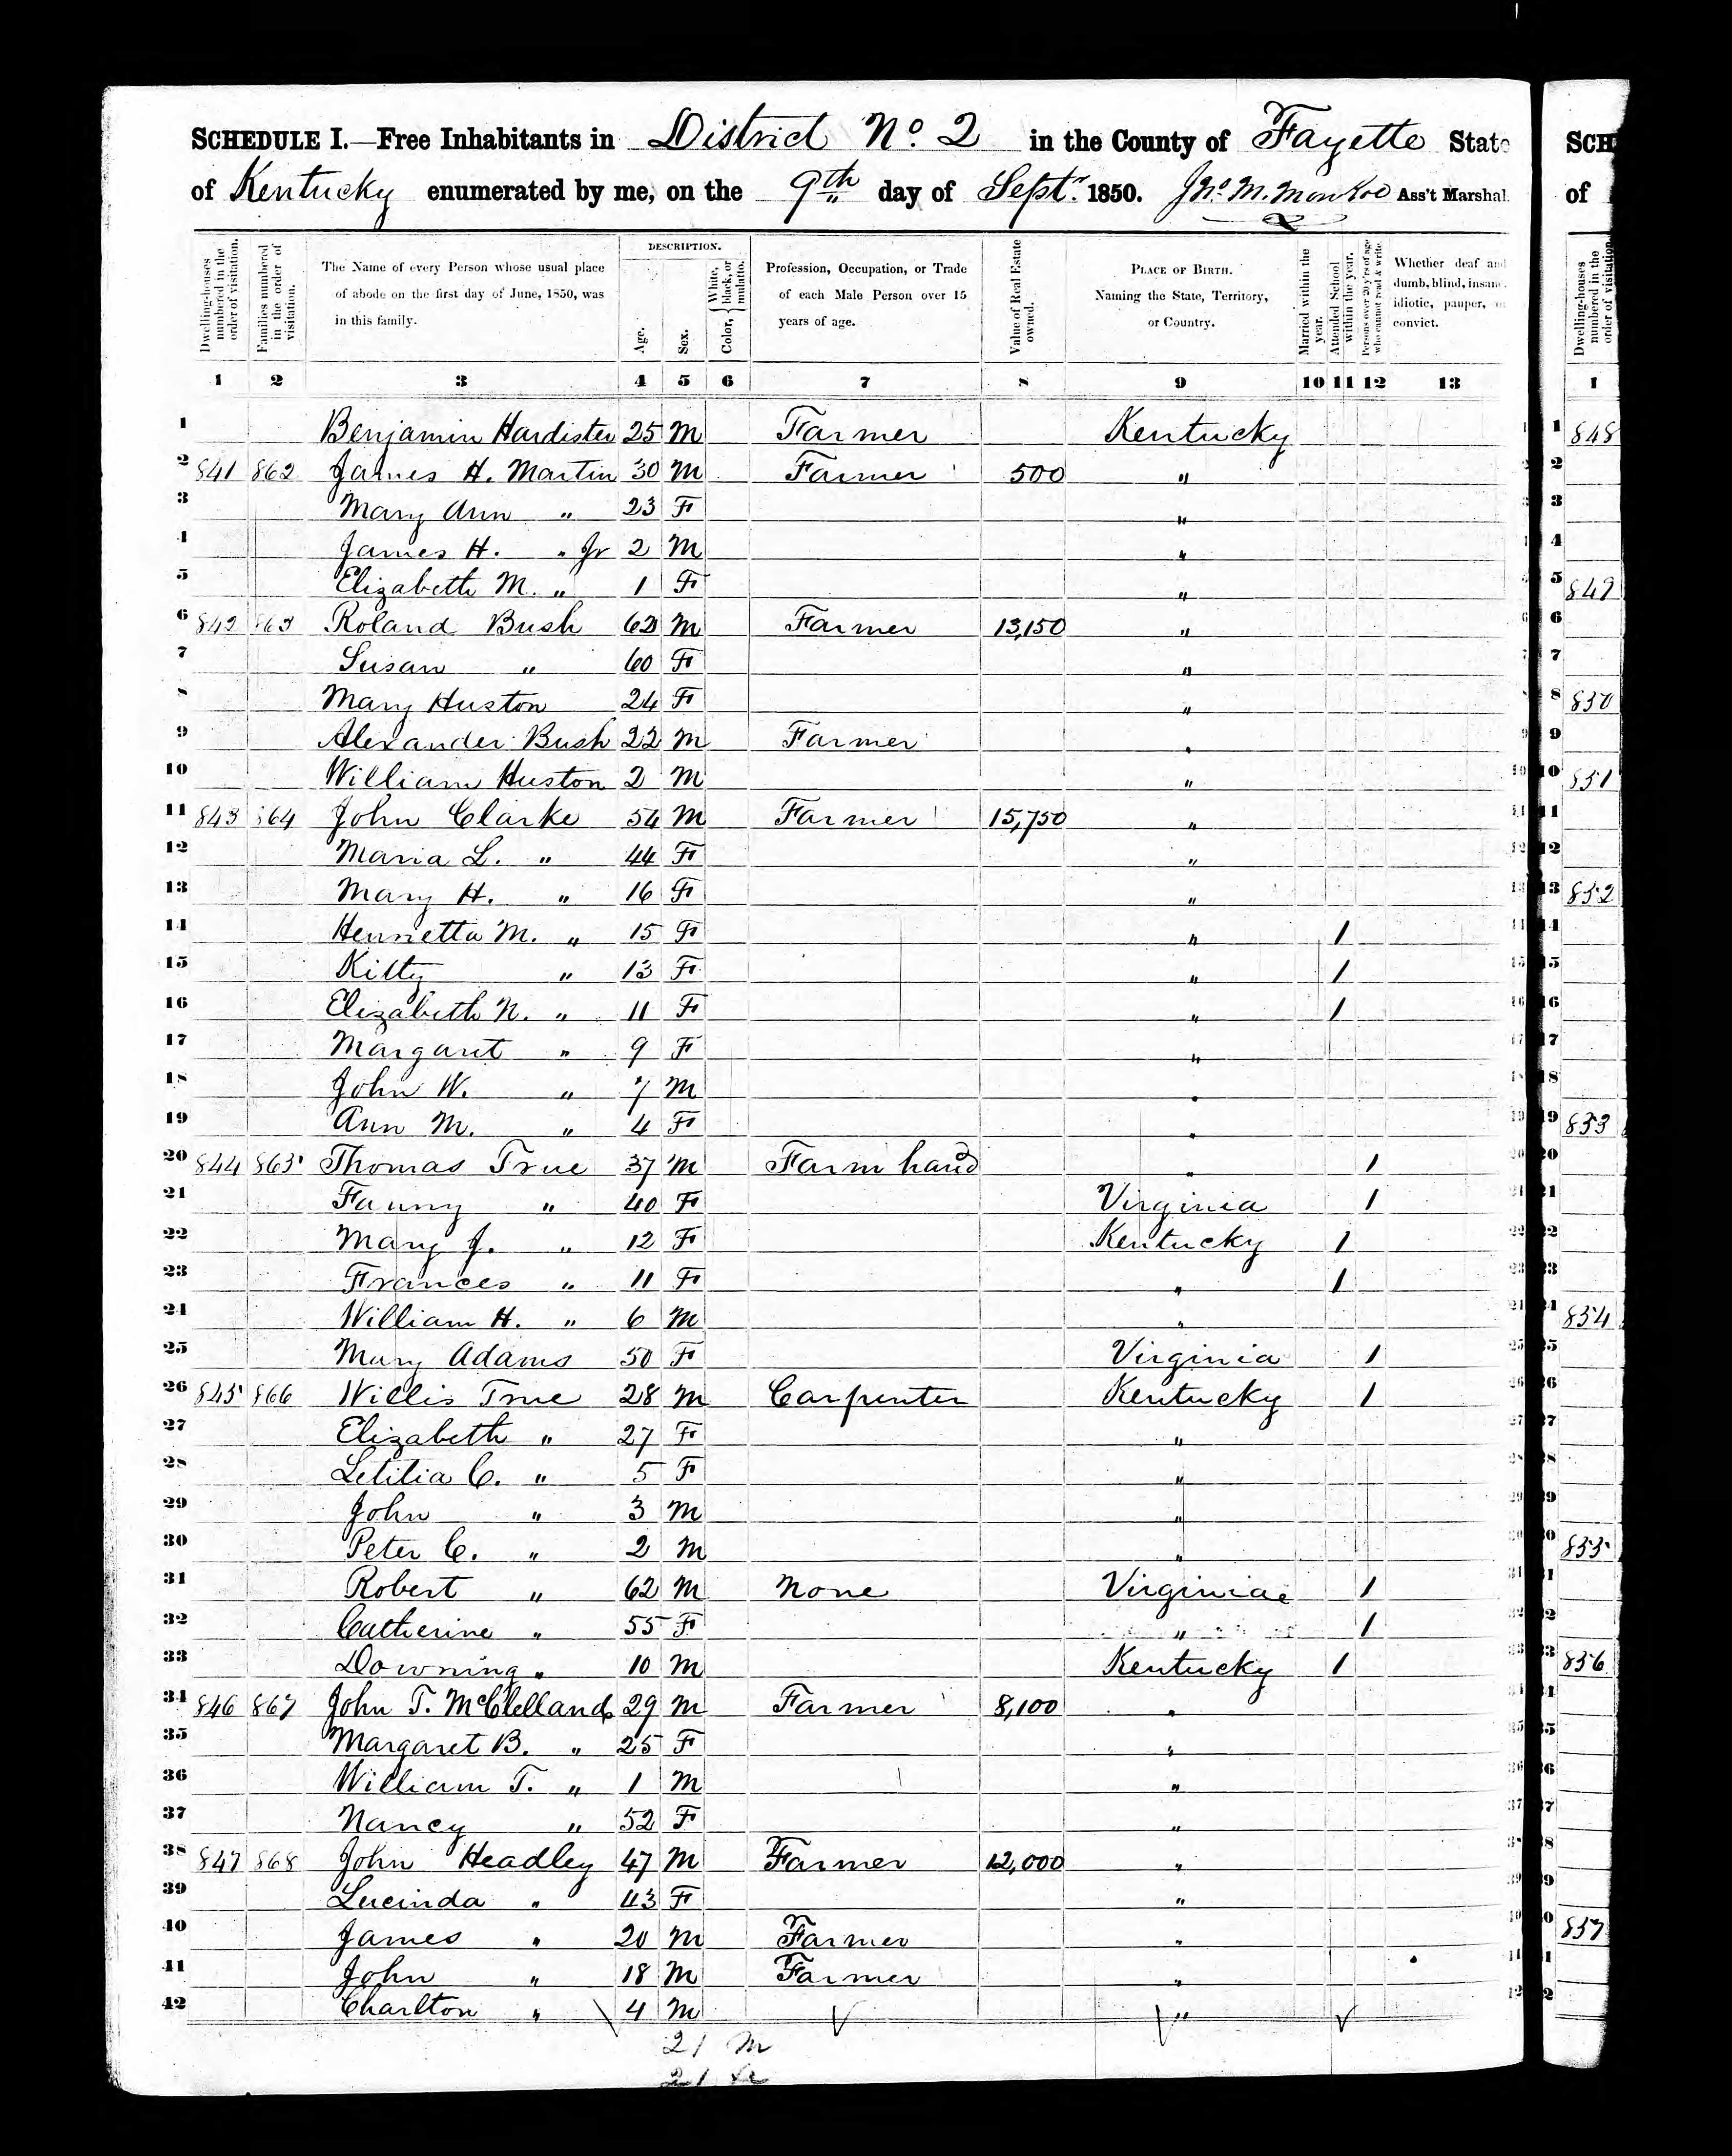 SCHEDULE I.—Free Inhabitants in District No. 2 in the County of Fayette State
of Kentucky enumerated by me, on the 9th day of Septr. 1850. Jno. M. Monroe Ass't Marshal.
Dwelling-houses numbered in the order of visitation.
Families numbered in the order of visitation.
The Name of every Person whose usual place of abode on the first day of June, 1850, was in this family.
DESCRIPTION.
Age.
Sex.
Color, White, black, or mulatto.
Profession, Occupation, or Trade of each Male Person over 15 years of age.
Value of Real Estate owned.
PLACE OF BIRTH. Naming the State, Territory, or Country.
Married within the year.
Attended School within the year.
Persons over 20 y'rs of age who cannot read & write
Whether deaf and dumb, blind, insane, idiotic, pauper, or convict.
1 2 3 4 5 6 7 8 9 10 11 12 13
1 Benjamin Hardister 25 M Farmer Kentucky
2 841 862 James H. Martin 30 M Farmer 500 "
3 Mary Ann " 23 F "
4 James H. " Jr 2 M "
5 Elizabeth M. " 1 F "
6 842 863 Roland Bush 62 M Farmer 13,150 "
7 Susan " 60 F "
8 Mary Huston 24 F "
9 Alexander Bush 22 M Farmer "
10 William Huston 2 M "
11 843 864 John Clarke 54 M Farmer 15,750 "
12 Maria L. " 44 F "
13 Mary H. " 16 F "
14 Henrietta M. " 15 F " 1
15 Kitty " 13 F " 1
16 Elizabeth N. " 11 F " 1
17 Margaret " 9 F "
18 John W. " 7 M "
19 Ann M. " 4 F "
20 844 865 Thomas True 37 M Farm hand " 1
21 Fanny " 40 F Virginia 1
22 Mary J. " 12 F Kentucky 1
23 Frances " 11 F " 1
24 William H. " 6 M "
25 Mary Adams 50 F Virginia 1
26 845 866 Willis True 28 M Carpenter Kentucky 1
27 Elizabeth " 27 F "
28 Letitia C. " 5 F "
29 John " 3 M "
30 Peter C. " 2 M "
31 Robert " 62 M None Virginia 1
32 Catherine " 55 F " 1
33 Downing " 10 M Kentucky 1
34 846 867 John T. McClelland 29 M Farmer 8,100 "
35 Margaret B. " 25 F "
36 William T. " 1 M "
37 Nancy " 52 F "
38 847 868 John Headley 47 M Farmer 12,000 "
39 Lucinda " 43 F "
40 James " 20 M Farmer "
41 John " 18 M Farmer "
42 Charlton " 4 M "
21 M
21
SCH
of
Dwelling-houses numbered in the order of visitation.
1
1 848
2
3
4
5 849
6
7
8 850
9
10 851
11
12
13 852
14
15
16
17
18
19 853
20
21
22
23
24 854
25
26
27
28
29
30 855
31
32
33 856
34
35
36
37
38
39
40 857
41
42